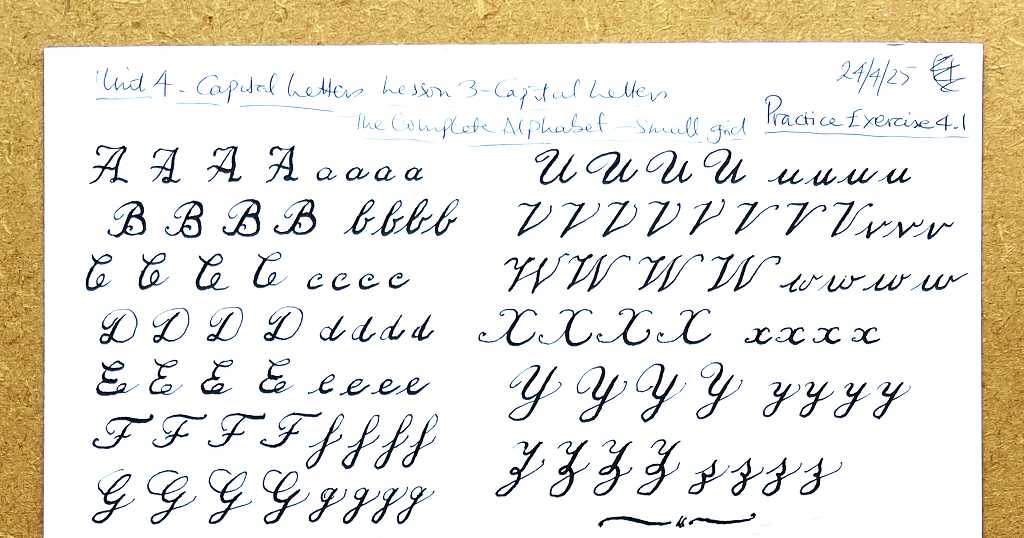 Unit 4 - Capital Letters Lesson 3 - Capital Letters
24/4/25
The Complete Alphabet - Small grid
Practice Exercise 4.1
A A A A a a a a
B B B B b b b b
C C C C c c c c
D D D D d d d d
E E E E e e e e
F F F F f f f f
G G G G g g g g
U U U U u u u u
V V V V V V V V v v v
W W W W w w w w
X X X X x x x x
Y Y Y Y y y y y
Z Z Z Z z z z z